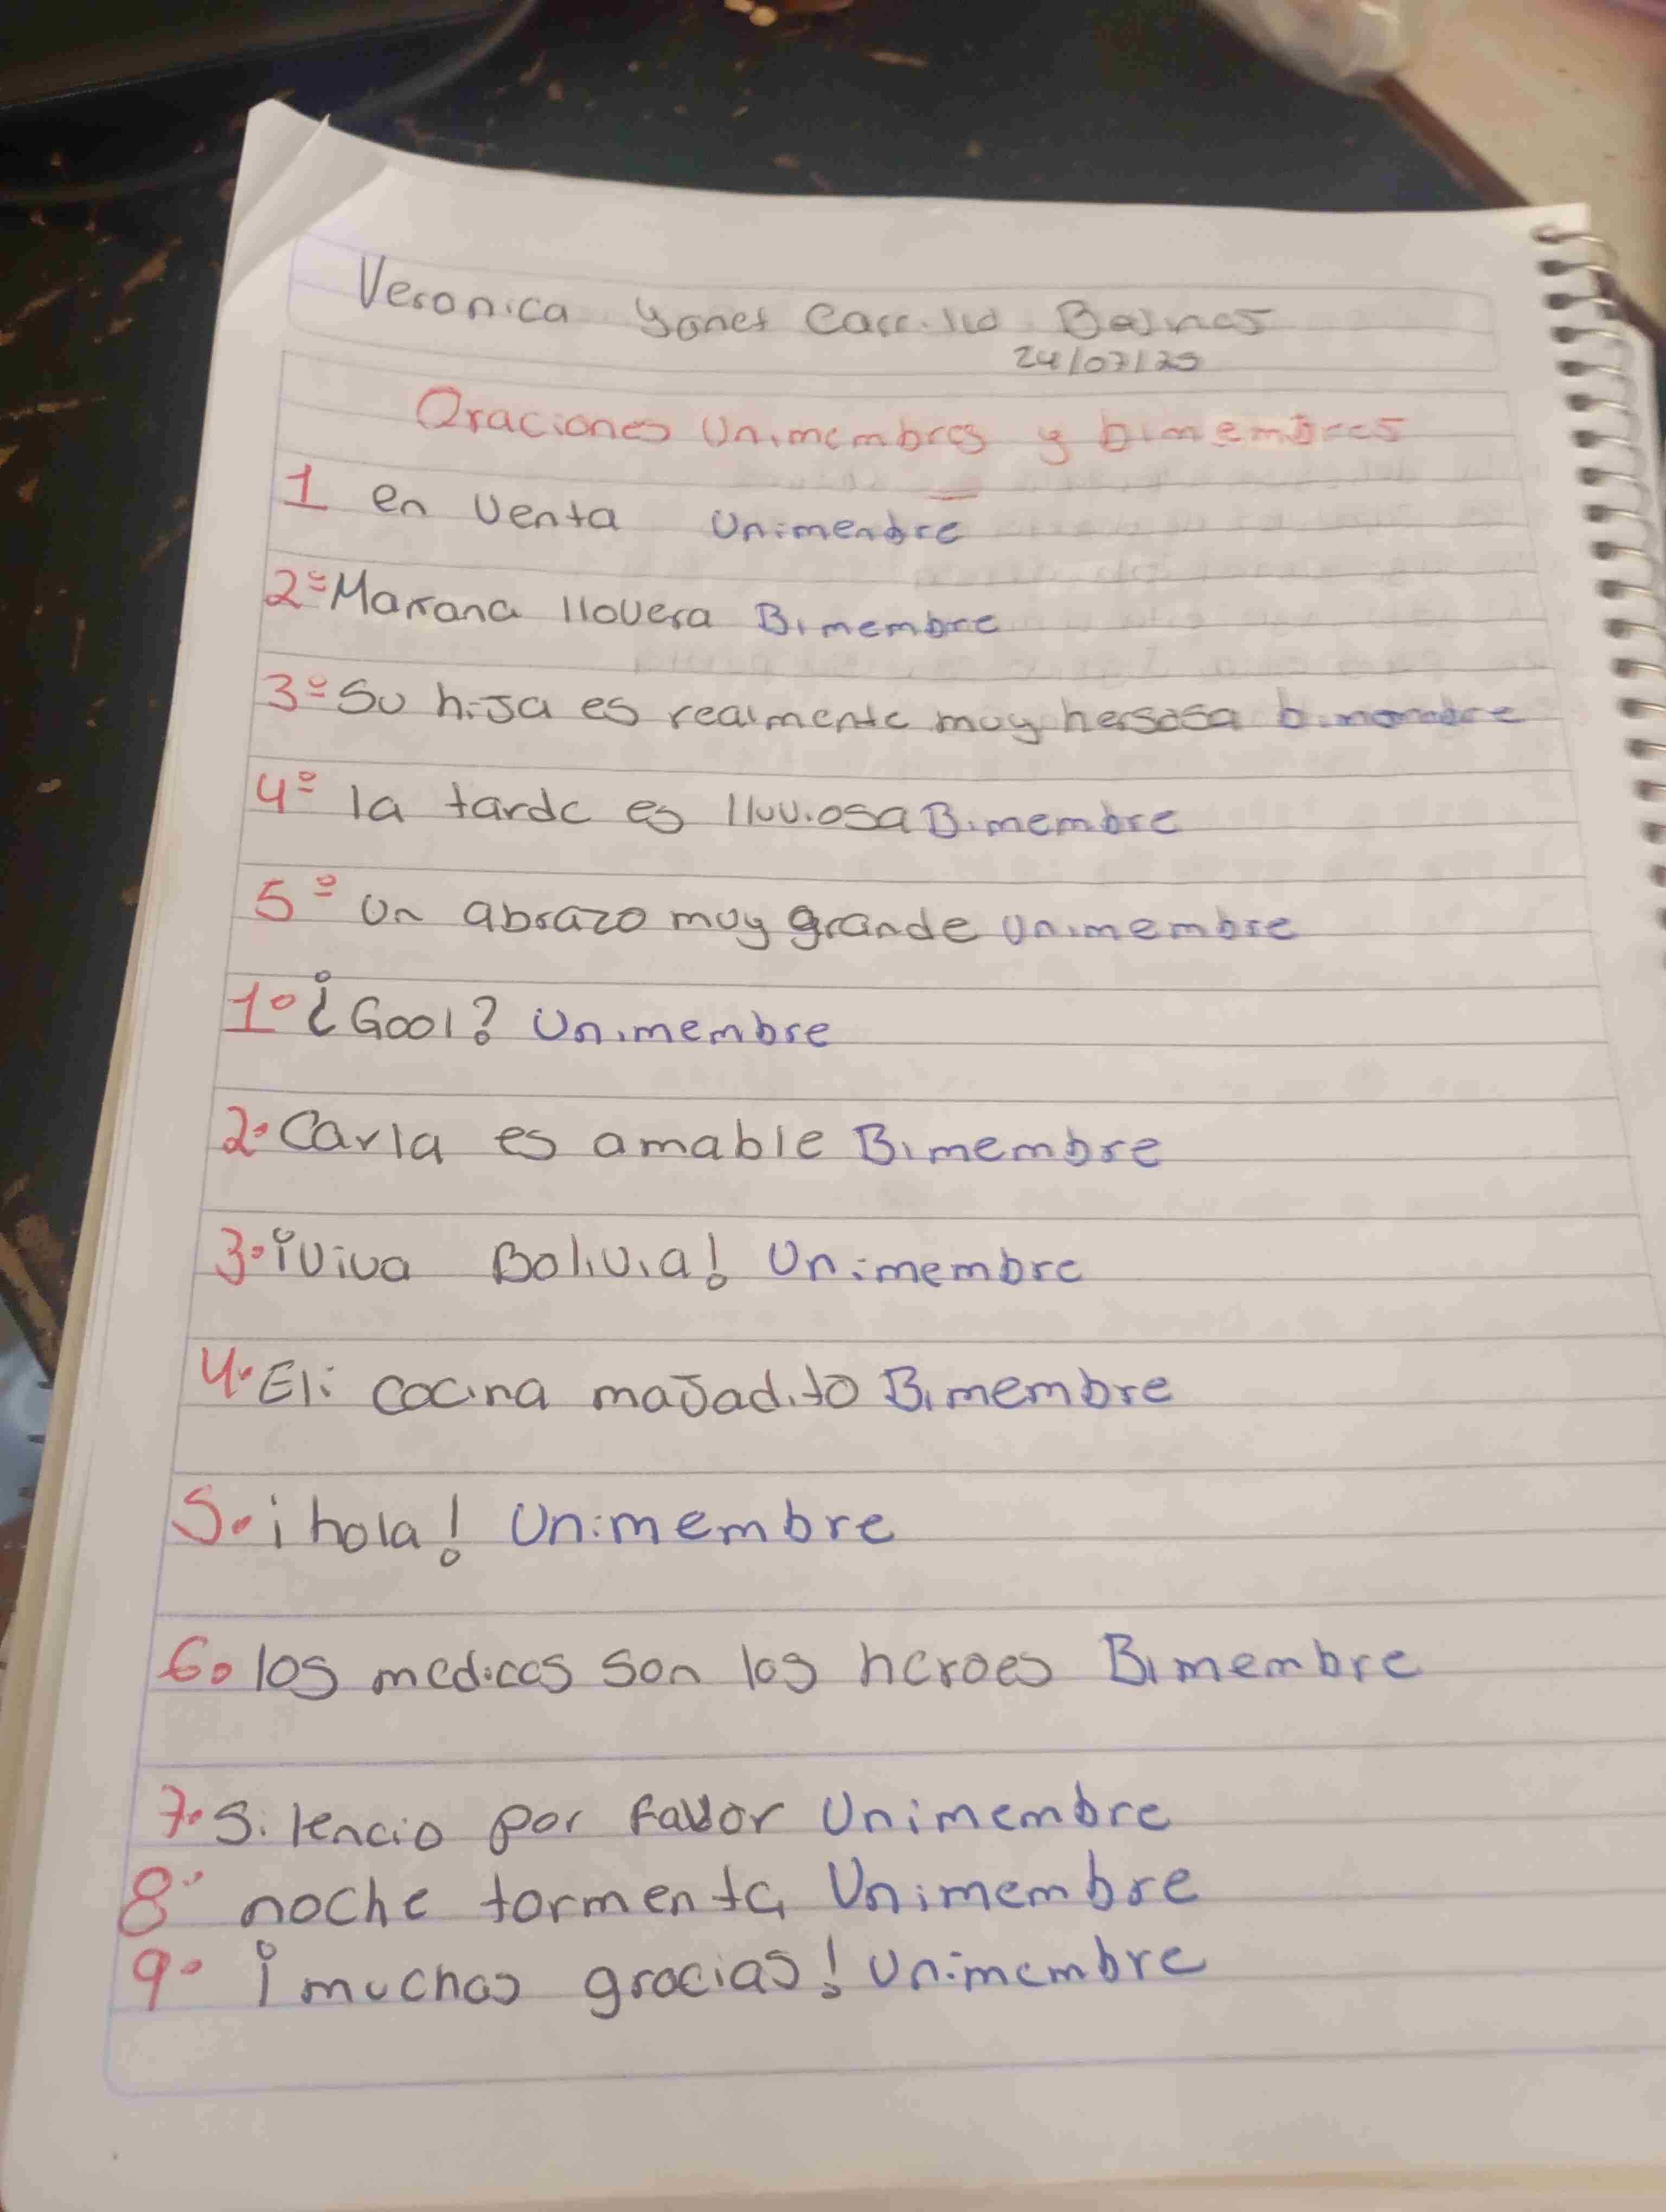 Veronica Yanet Carrillo
24/07/25
Oraciones Unimembres y bimembres
1 en venta Unimenbre
2º Mañana llovera Bimembre
3º Su hija es realmente muy hersosa
4º la tarde es lluviosa Bimembre
5º Un abrazo muy grande Unimembre
1º ¿Gool? Unimembre
2. Carla es amable Bimembre
3. ¡Viva Bolivia! Unimembre
4. Eli cocina majadito Bimembre
5. ¡hola! Unimembre
6. los medicos son los heroes Bimembre
7. Silencio por favor Unimembre
8. noche tormenta Unimembre
9. ¡muchas gracias! Unimembre